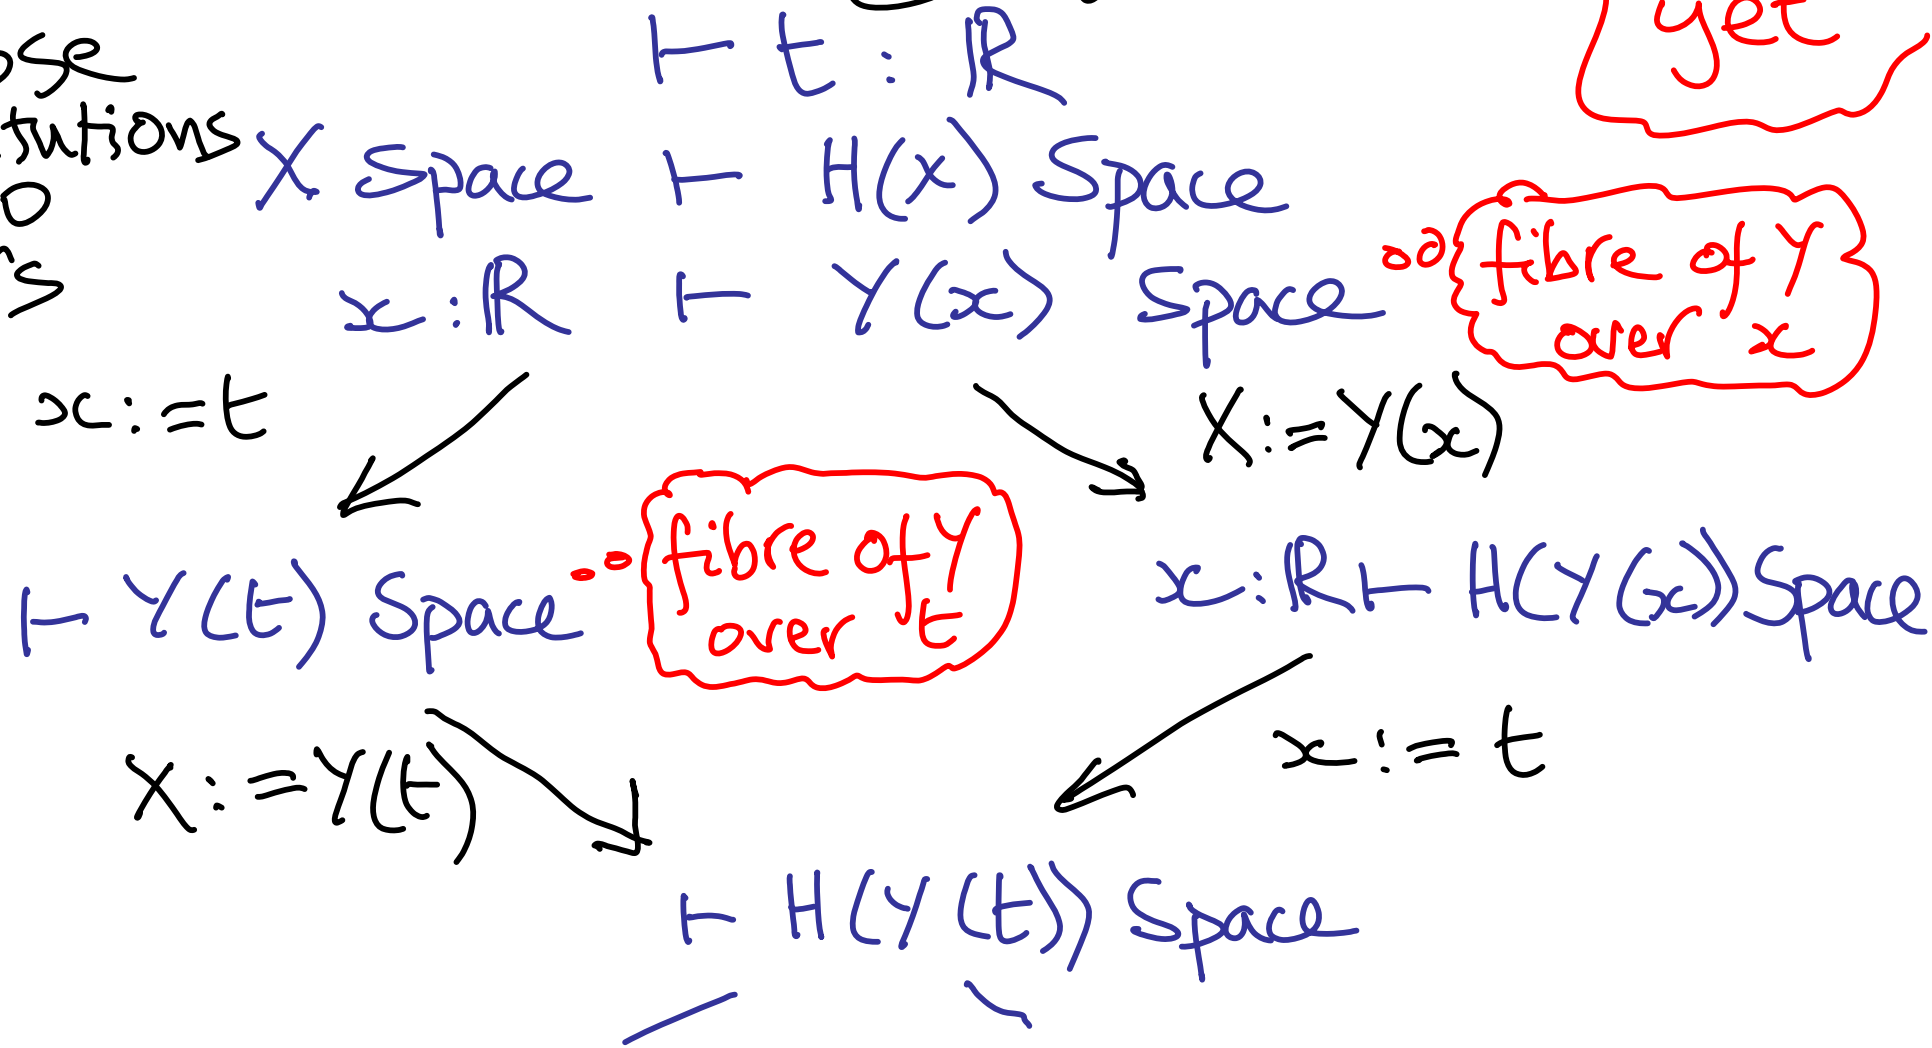 ⊢ t : ℝ
yet
X Space ⊢ H(X) Space
x : ℝ ⊢ Y(x) Space
fibre of Y
over x
x := t
X := Y(x)
⊢ Y(t) Space
fibre of Y
over t
x : ℝ ⊢ H(Y(x)) Space
X := Y(t)
x := t
⊢ H(Y(t)) Space